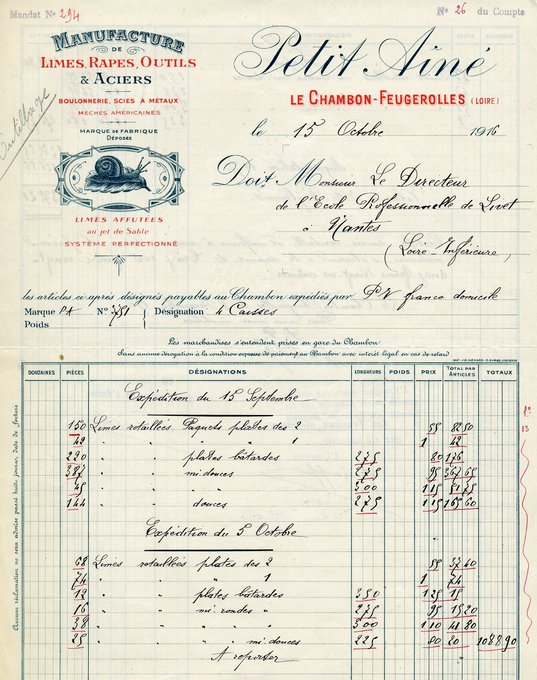 Mandat Nº 294
Nº 26 du Compte
MANUFACTURE
DE
LIMES, RAPES, OUTILS
& ACIERS
BOULONNERIE, SCIES A METAUX
MECHES AMÉRICAINES
MARQUE DE FABRIQUE
DÉPOSÉE
LIMES AFFUTÉES
au jet de Sable
SYSTÈME PERFECTIONNÉ
Outillage
Petit Aîné
LE CHAMBON-FEUGEROLLES (LOIRE)
le 15 Octobre 1916
Doit Monsieur Le Directeur
de l'Ecole Professionnelle de Livet
à Nantes
(Loire-Inférieure)
les articles ci-après désignés payables au Chambon expédiés par P.V. franco domicile
Marque PA Nº 3751 Désignation 4 Caisses
Poids
Les marchandises s'entendent prises en gare du Chambon
Sans aucune dérogation à la condition expresse de paiement au Chambon avec intérêt légal en cas de retard
DOUZAINES PIÈCES DÉSIGNATIONS LONGUEURS POIDS PRIX TOTAL PAR ARTICLES TOTAUX
Aucune réclamation ne sera admise passé huit jours, date de facture
Expédition du 15 Septembre
150 Limes retaillées Paquets plates des 2 55 82 50
42 " " " " 1 1 42
220 " " plates bâtardes 275 80 176
387 " " " mi-douces 275 95 367 65
45 " " " " 300 1 15 51 75
144 " " " douces 275 1 15 165 60
Expédition du 5 Octobre
68 Limes retaillées plates des 2 55 37 40
74 " " " 1 1 74
12 " " plates bâtardes 350 1 25 15
16 " " mi-rondes " 275 95 15 20
38 " " " " 300 1 10 41 80
25 " " " mi-douces 225 80 20 1088 90
A reporter